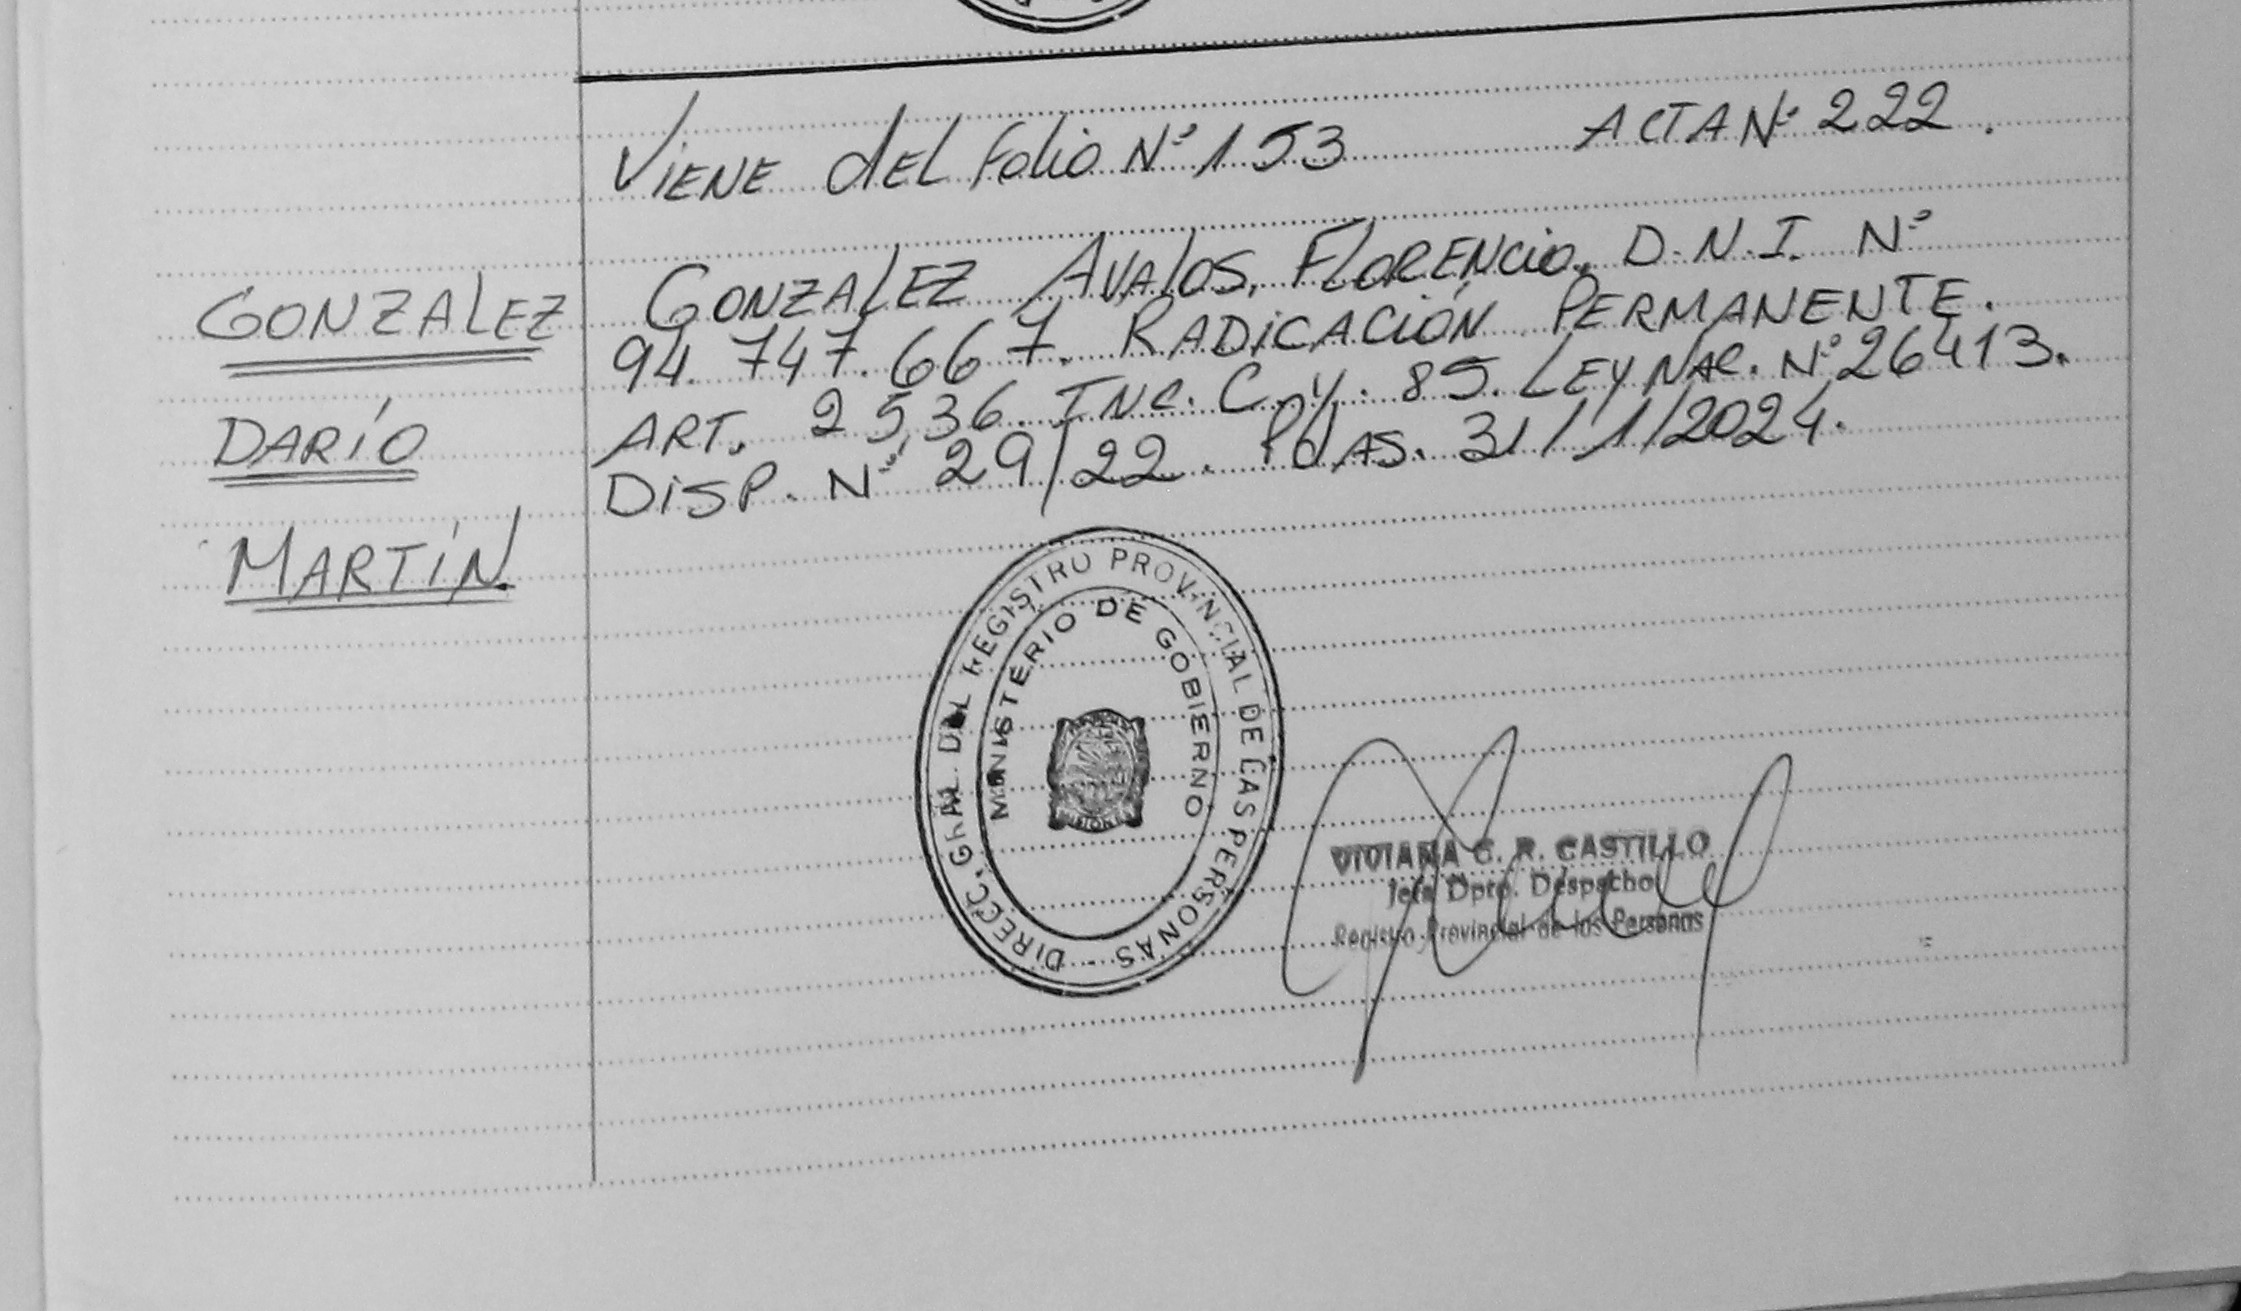 VIENE dEL foLio Nº 153 ACTA Nº 222.
GONZALEZ
DARÍO
MARTÍN.
GONZALEZ AVALOS, FLORENCIO. D.N.I. Nº
94.747.667. RADICACIÓN PERMANENTE.
ART. 25,36. INC. C. Y. 85. LEY NAC. Nº 26413.
DISP. Nº 29/22. PdAS. 31/1/2024.
DIRECC. GRAL DEL REGISTRO PROVINCIAL DE LAS PERSONAS -
MINISTERIO DE GOBIERNO
MISIONES
VIVIANA C. R. CASTILLO
Jefa Dpto. Despacho
Registro Provincial de las Personas